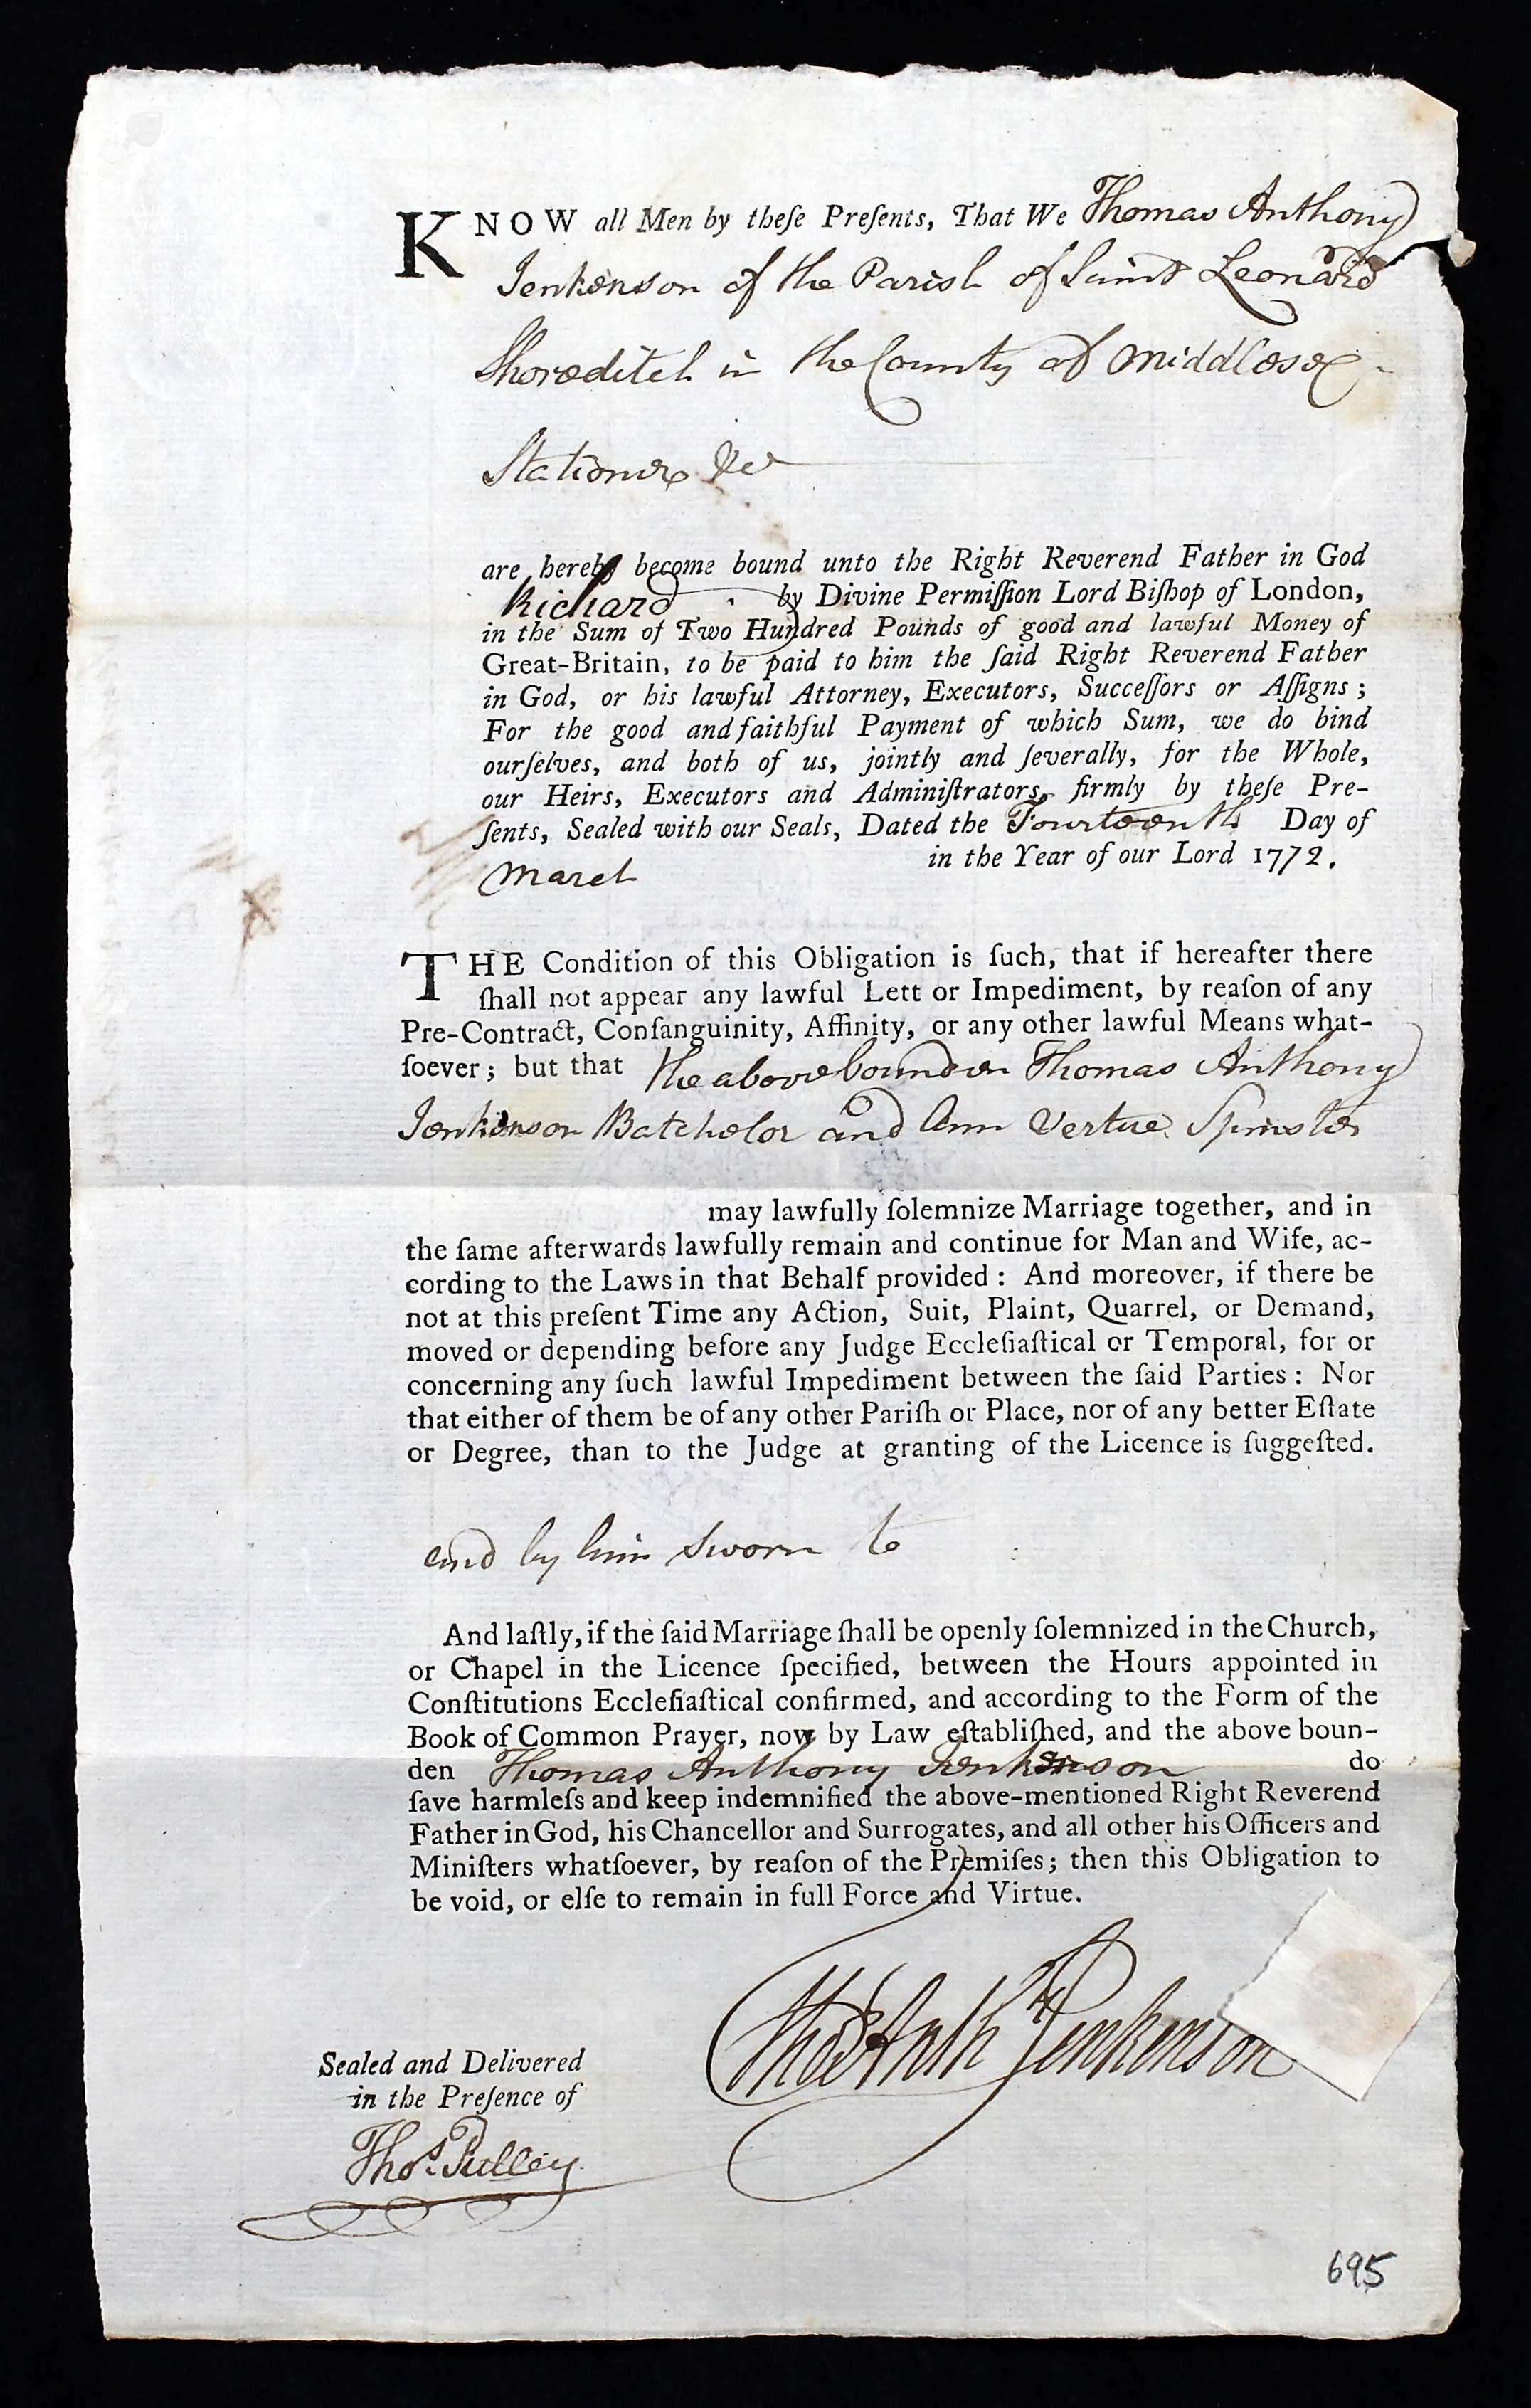 KNOW all Men by theſe Preſents, That We Thomas Anthony
Jenkenson of the Parish of Saint Leonard
Shoreditch in the County of Middlesex
Stationer &c
are hereby become bound unto the Right Reverend Father in God
Richard by Divine Permiſſion Lord Biſhop of London,
in the Sum of Two Hundred Pounds of good and lawful Money of
Great-Britain, to be paid to him the ſaid Right Reverend Father
in God, or his lawful Attorney, Executors, Succeſſors or Aſſigns;
For the good and faithful Payment of which Sum, we do bind
ourſelves, and both of us, jointly and ſeverally, for the Whole,
our Heirs, Executors and Adminiſtrators, firmly by theſe Pre-
ſents, Sealed with our Seals, Dated the Fourteenth Day of
March in the Year of our Lord 1772.
THE Condition of this Obligation is ſuch, that if hereafter there
ſhall not appear any lawful Lett or Impediment, by reaſon of any
Pre-Contract, Conſanguinity, Affinity, or any other lawful Means what-
ſoever; but that the above bounden Thomas Anthony
Jenkenson Batchelor and Ann Vertue Spinster
may lawfully ſolemnize Marriage together, and in
the ſame afterwards lawfully remain and continue for Man and Wife, ac-
cording to the Laws in that Behalf provided: And moreover, if there be
not at this preſent Time any Action, Suit, Plaint, Quarrel, or Demand,
moved or depending before any Judge Eccleſiaſtical or Temporal, for or
concerning any ſuch lawful Impediment between the ſaid Parties: Nor
that either of them be of any other Pariſh or Place, nor of any better Eſtate
or Degree, than to the Judge at granting of the Licence is ſuggeſted.
and by him Sworn to
And laſtly, if the ſaid Marriage ſhall be openly ſolemnized in the Church,
or Chapel in the Licence ſpecified, between the Hours appointed in
Conſtitutions Eccleſiaſtical confirmed, and according to the Form of the
Book of Common Prayer, now by Law eſtabliſhed, and the above boun-
den Thomas Anthony Jenkenson do
ſave harmleſs and keep indemnified the above-mentioned Right Reverend
Father in God, his Chancellor and Surrogates, and all other his Officers and
Miniſters whatſoever, by reaſon of the Premiſes; then this Obligation to
be void, or elſe to remain in full Force and Virtue.
Thos Anthy Jenkenson
Sealed and Delivered
in the Preſence of
Thos. Pulley
695